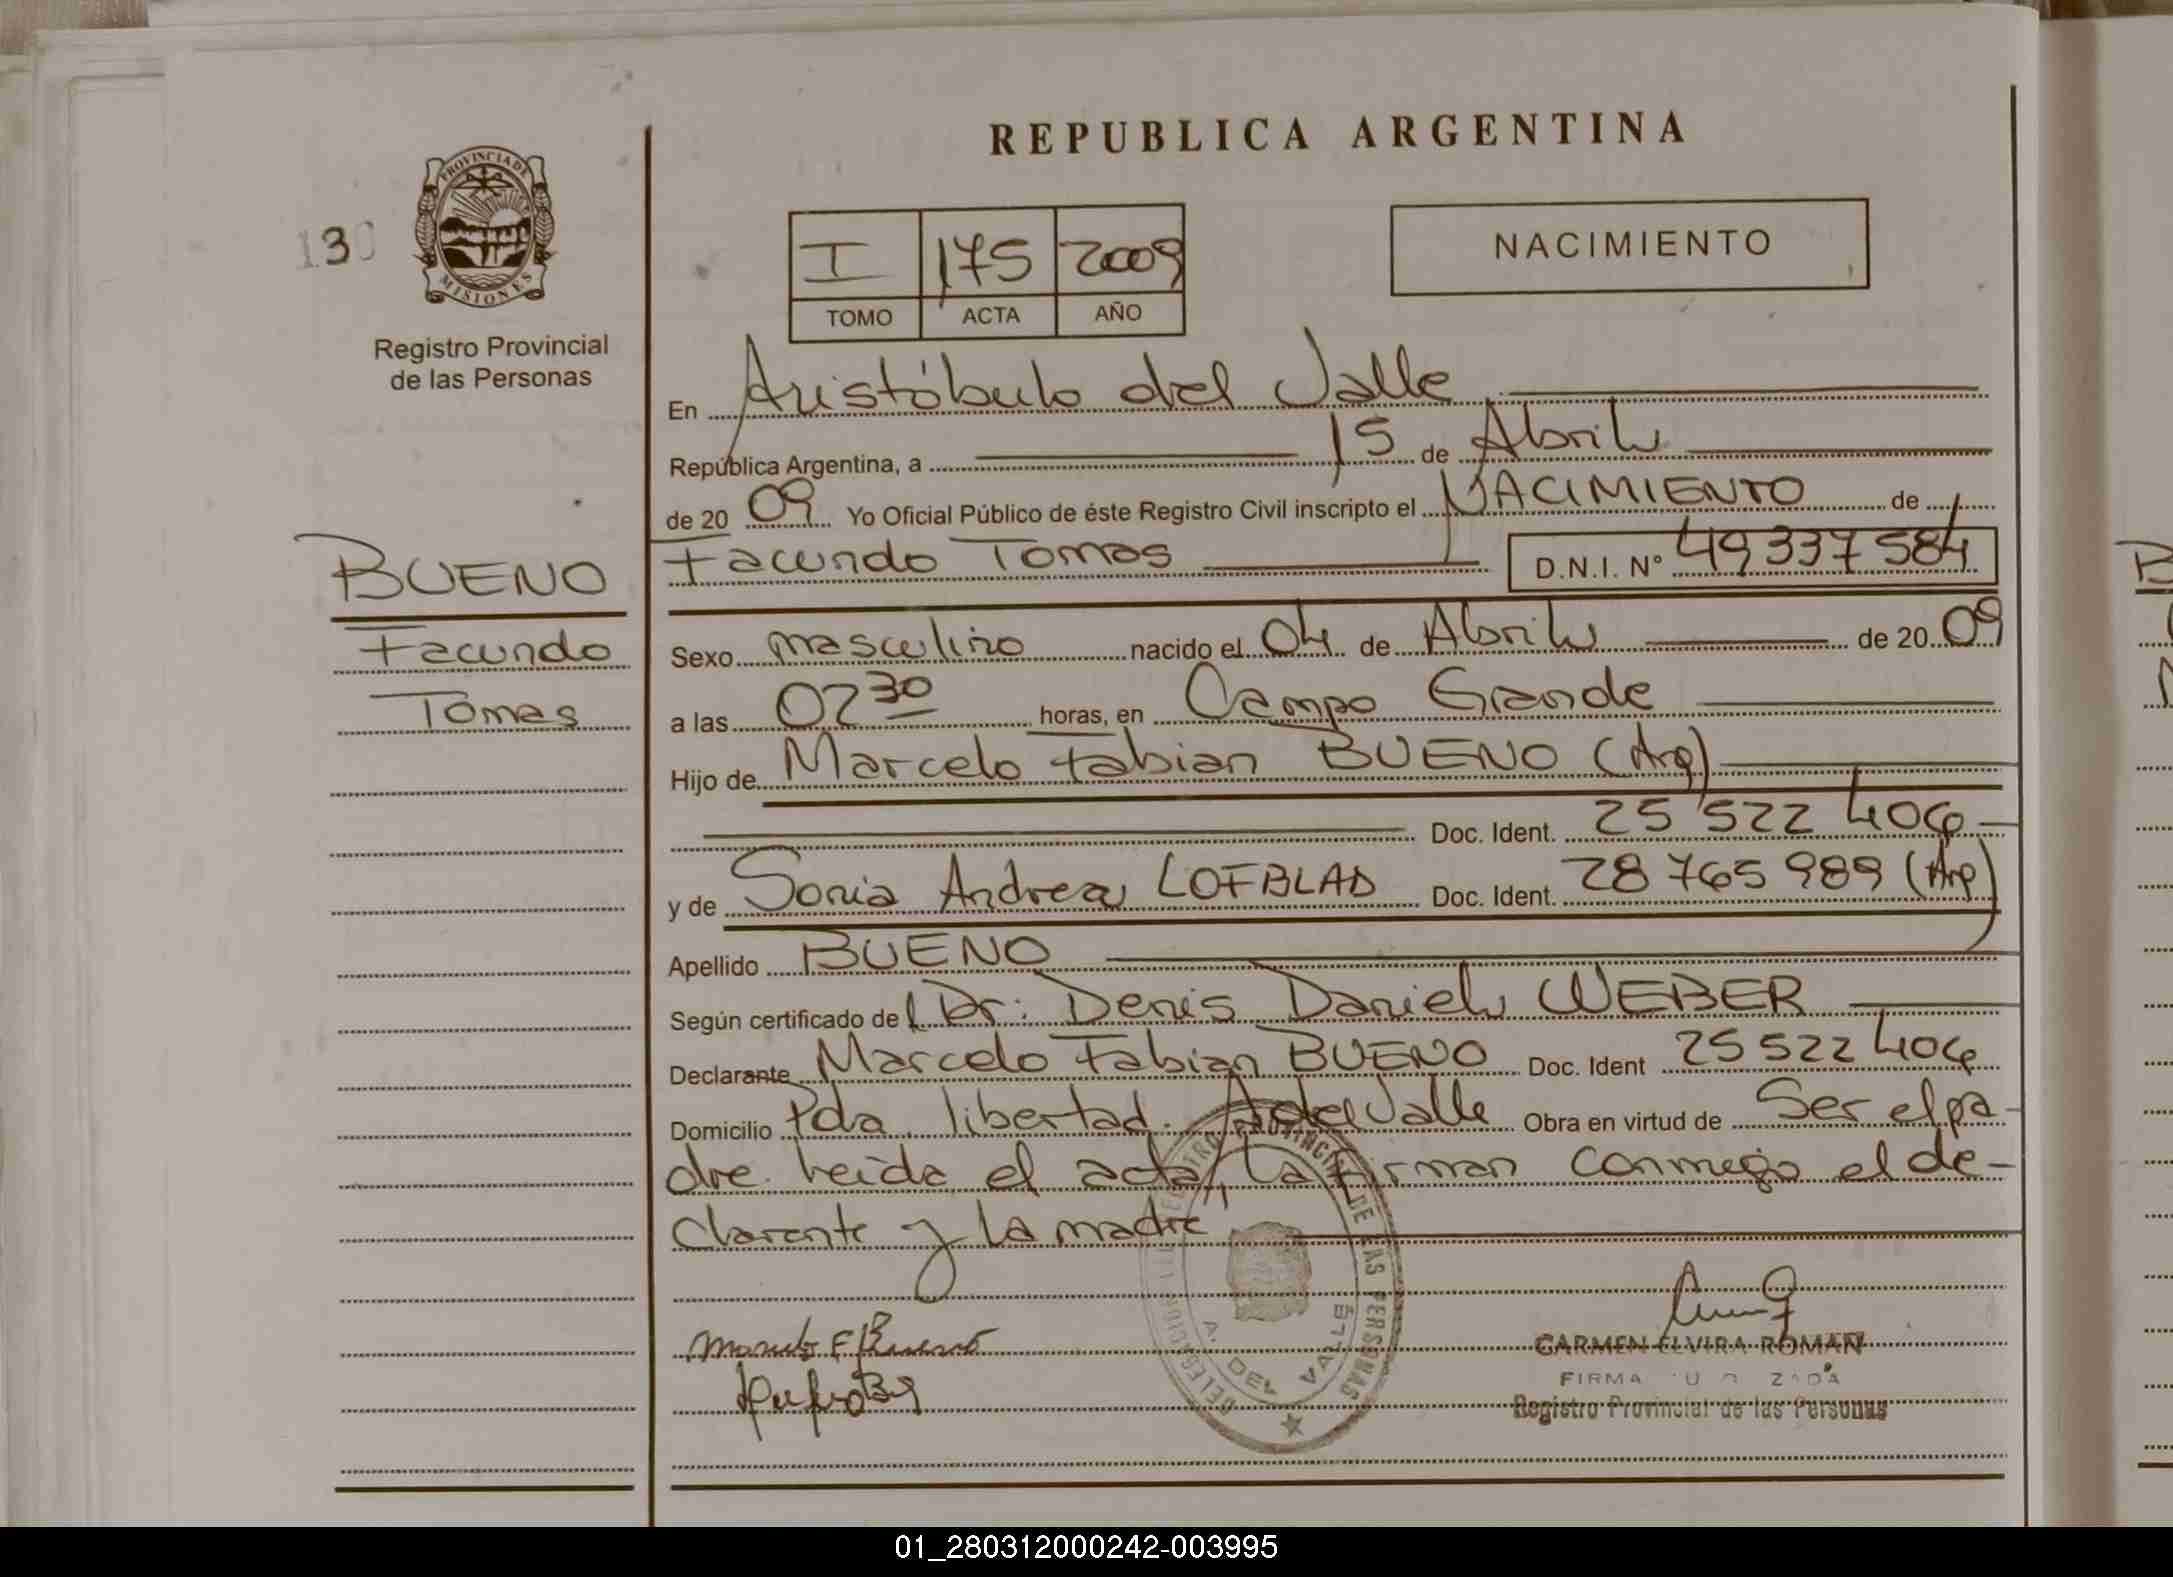 REPUBLICA ARGENTINA
PROVINCIA DE
MISIONES
130
Registro Provincial
de las Personas
I 175 2009
TOMO ACTA AÑO
NACIMIENTO
En Aristóbulo del Valle
República Argentina, a 15 de Abril
de 20 09 Yo Oficial Público de éste Registro Civil inscripto el NACIMIENTO de
Facundo Tomas D.N.I. Nº 49337584
BUENO
Facundo
Tomas
Sexo masculino nacido el 04 de Abril de 20 09
a las 07 30 horas, en Campo Grande
Hijo de Marcelo Fabian BUENO (Arg)
Doc. Ident. 25 522 406
y de Sonia Andrea LOFBLAD Doc. Ident. 28 765 989 (Arg)
Apellido BUENO
Según certificado del Dr: Denis Daniel WEBER
Declarante Marcelo Fabian BUENO Doc. Ident 25 522 406
Domicilio Pda libertad. A del Valle Obra en virtud de Ser el pa-
dre. leida el acta, la firman conmigo el de-
clarante y la madre
Marcelo F Bueno
CARMEN ELVIRA ROMAN
FIRMA
Registro Provincial de las Personas
REGISTRO PROVINCIAL DE LAS PERSONAS
DELEGACION
A. DEL VALLE
01_280312000242-003995